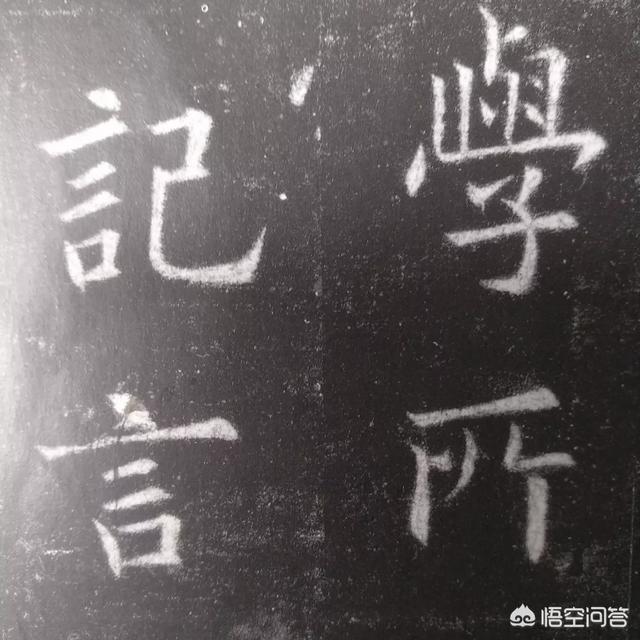 學所
記言
悟空问答